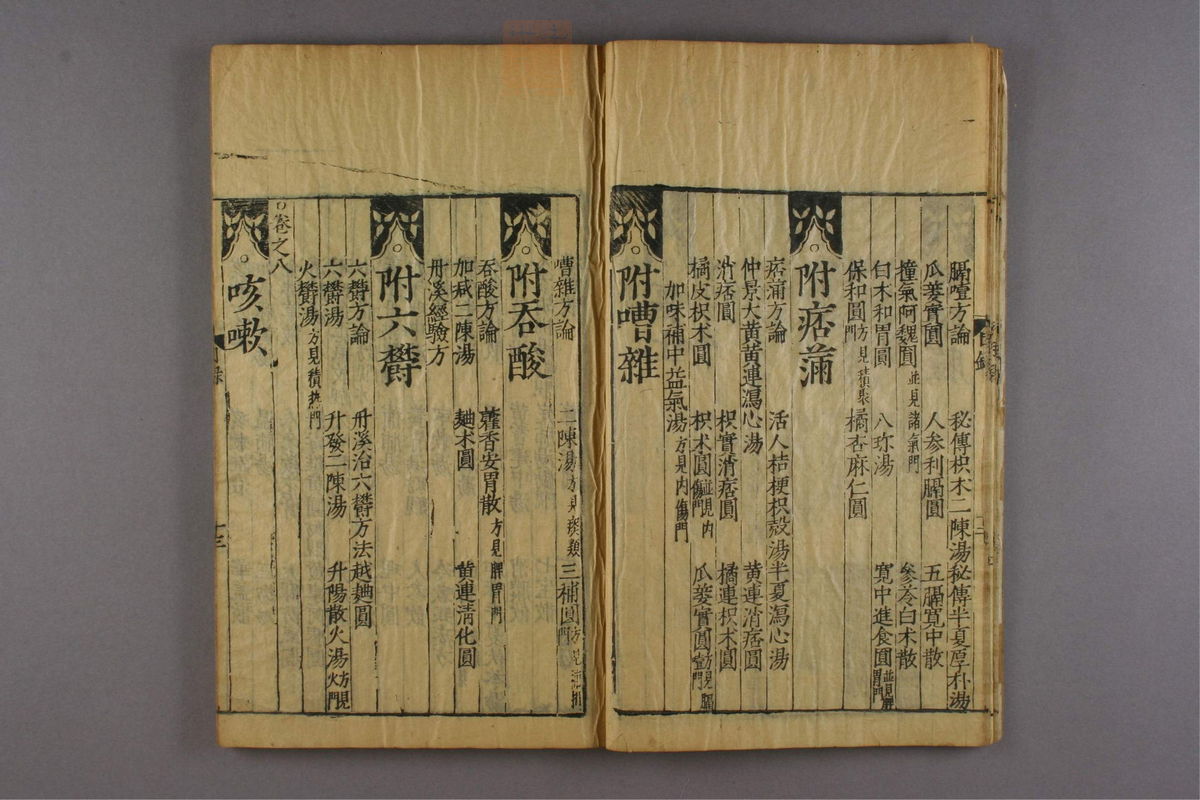 膈噎方論　秘傳枳朮二陳湯　秘傳半夏厚朴湯
瓜蔞實圓　人参利膈圓　五膈寛中散
撞氣阿魏圓並見諸氣門　參苓白朮散
白朮和胃圓　八珎湯　寛中進食圓並見脾胃門
保和圓方見積聚門　橘杏麻仁圓
附痞滿
痞滿方論　活人桔梗枳殼湯　半夏瀉心湯
仲景大黄黄連瀉心湯　黄連消痞圓
消痞圓　枳實消痞圓　橘連枳朮圓
橘皮枳朮圓　枳朮圓並見内傷門　瓜蔞實圓方見膈門
加味補中益氣湯方見内傷門
附嘈雜
嘈雜方論　二陳湯方見痰類　三補圓方見
附吞酸
吞酸方論　藿香安胃散方見脾胃門
加减二陳湯　麯朮圓　黄連清化圓
丹溪經驗方
附六欝
六欝方論　丹溪治六欝方法　越麯圓
六欝湯　升發二陳湯　升陽散火湯方見火門
火欝湯方見積熱門
卷之八
咳嗽